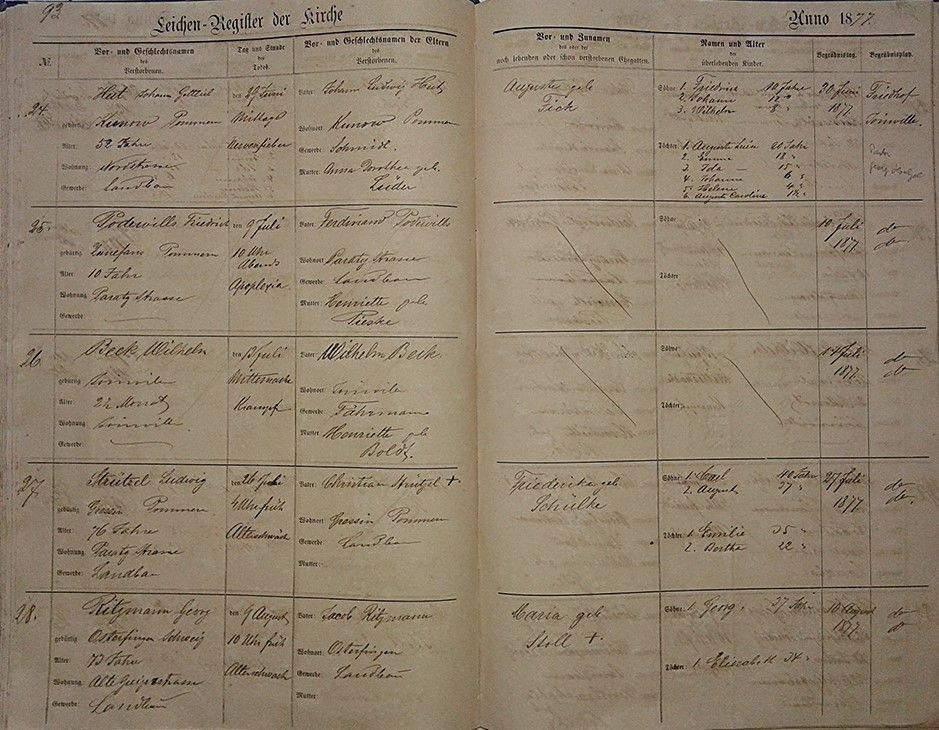 92
Leichen-Register der Kirche
Anno 1877.
№.
Vor- und Geschlechtsnamen
des
Verstorbenen.
Tag und Stunde
des
Todes.
Vor- und Geschlechtsnamen der Eltern
des
Verstorbenen.
Vor- und Zunamen
des oder der
noch lebenden oder schon verstorbenen Ehegatten.
Namen und Alter
der
überlebenden Kinder.
Begräbnisstag.
Begräbnissplatz.
24.
Johann Gottlieb
gebürtig Kunow Pommern
Alter: 52 Jahre
Wohnung: Nordstrasse
Gewerbe: Landbau
den Juni
Mittags
Nervenfieber
Vater: Johann Ludwig
Wohnort: Kunow Pommern
Gewerbe: Schmidt.
Mutter: Anna Dorothea geb.
Lüder
Auguste geb
Fick
Söhne: 1. Friedrich 20 Jahre
2. Johann 12 "
3. Wilhelm 8 "
Töchter: 1. Auguste Luise 20 Jahr
2. Emma 18 "
3. Ida 15 "
4. Johanna 6 "
5. Helene 4 "
6. Auguste Caroline
20 Juni
1877.
Friedhof
Joinville.
25.
Podewills Friedrich
gebürtig Pommern
Alter: 10 Jahre
Wohnung: Paraty Strasse
Gewerbe:
den 9 Juli
10 Uhr
Abends
Apoplexia
Vater: Ferdinand Podewills
Wohnort: Paraty Strasse
Gewerbe: Landbau
Mutter: Henriette geb
Pieske
Söhne:
Töchter:
10 Juli
1877.
do
do
26.
Beck Wilhelm
gebürtig Joinville
Alter: 2½ Monat
Wohnung: Joinville.
Gewerbe:
den Juli
Mitternacht
Krampf
Vater: Wilhelm Beck.
Wohnort: Joinville
Gewerbe: Fuhrmann
Mutter: Henriette geb
Boldt.
Söhne:
Töchter:
14 Juli
1877.
do
do
27.
Strützel Ludwig
gebürtig Gressin Pommern
Alter: 76 Jahre
Wohnung: Paraty Strasse
Gewerbe: Landbau
den 26 Juli
4 Uhr früh
Altersschwäch
Vater: Christian Strutzel +
Wohnort: Gressin Pommern
Gewerbe: Landbau
Mutter:
Friedericke geb.
Schülke
Söhne: 1. Carl 40 Jahr
2. August 27 "
Töchter: 1. Emilie 35 "
2. Bertha 22 "
27 Juli
1877.
do
do.
28.
Ritzmann Georg
gebürtig Osterfingen Schweiz
Alter: 73 Jahre
Wohnung: Alte Guigerstrasse
Gewerbe: Landbau
den 9 August
10 Uhr früh
Altersschwach
Vater: Jacob Ritzmann
Wohnort: Osterfingen
Gewerbe: Landbau
Mutter:
Maria geb
Stoll +.
Söhne: 1. Georg. 37 Jahr.
Töchter: 1. Elisabeth 34 "
10 August
1877.
do
do